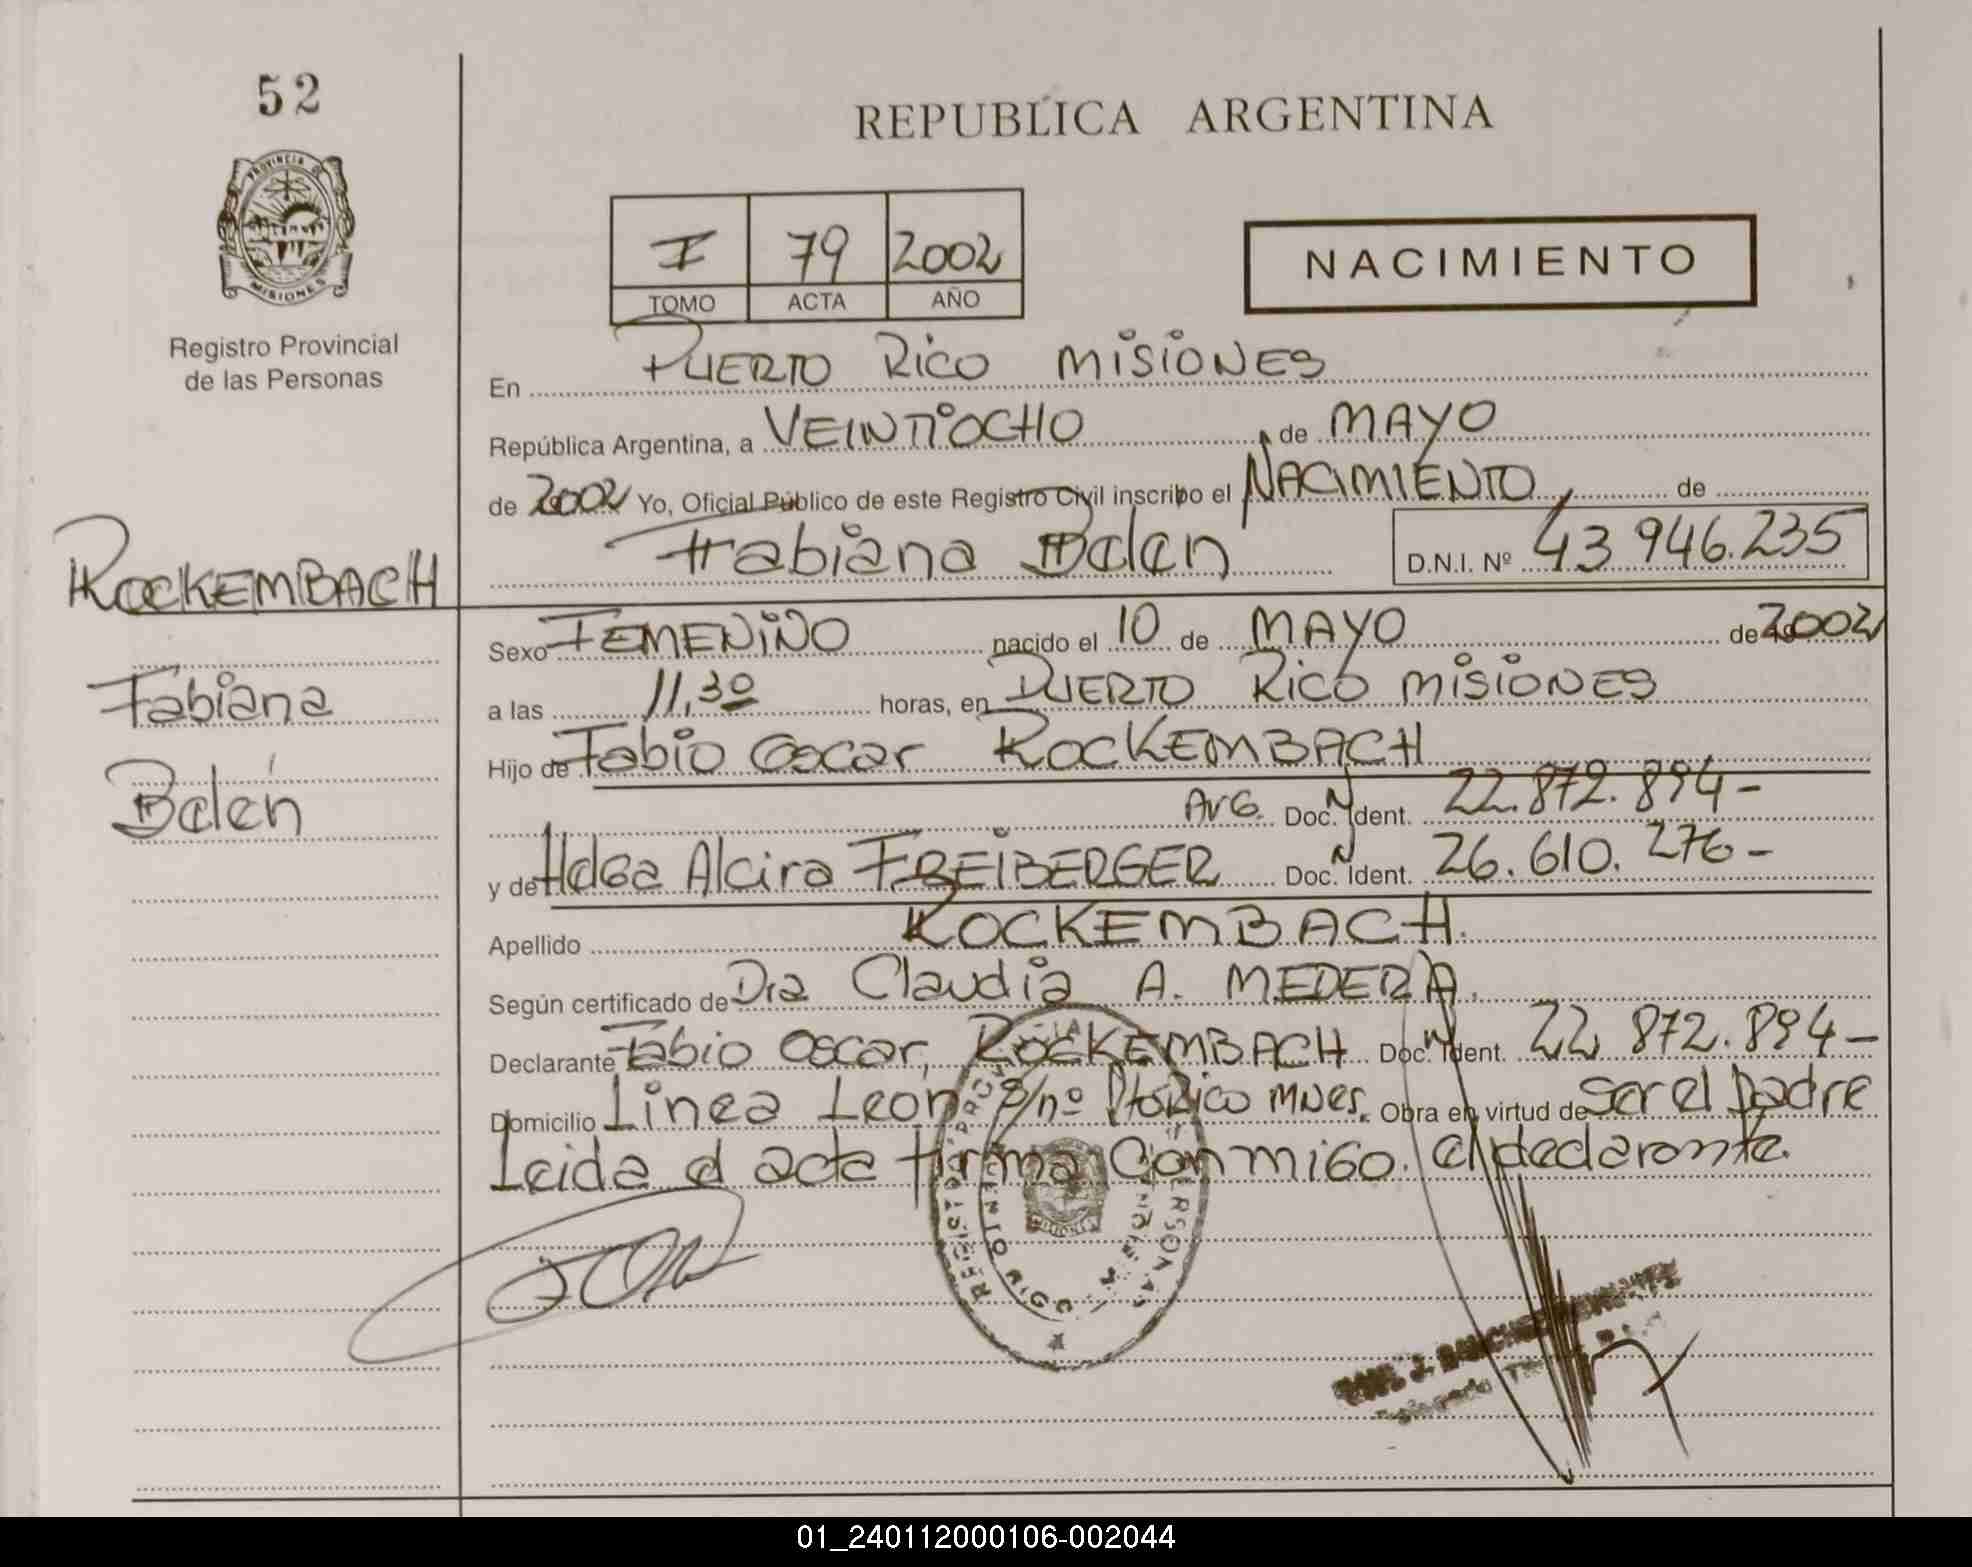 52
PROVINCIA DE
MISIONES
Registro Provincial
de las Personas
ROCKEMBACH
Fabiana
Belén
REPUBLICA ARGENTINA
I 79 2002
TOMO ACTA AÑO
NACIMIENTO
En PUERTO RICO MISIONES
República Argentina, a VEINTIOCHO de MAYO
de 2002 Yo, Oficial Público de este Registro Civil inscribo el NACIMIENTO de
Fabiana Belen D.N.I. Nº 43.946.235
Sexo FEMENINO nacido el 10 de MAYO de 2002
a las 11,30 horas, en PUERTO RICO MISIONES
Hijo de Fabio Oscar ROCKEMBACH
ArG. Doc. N Ident. 22.872.894-
y de Helga Alcira FREIBERGER Doc. N Ident. 26.610.276-
Apellido ROCKEMBACH.
Según certificado de Dra Claudia A. MEDERA.
Declarante Fabio Oscar, ROCKEMBACH Doc. N Ident. 22.872.894-
Domicilio Linea León s/nº Pto Rico Mnes. Obra en virtud de Ser el Padre
Leida el acta firma conmigo. el declarante.
01_240112000106-002044